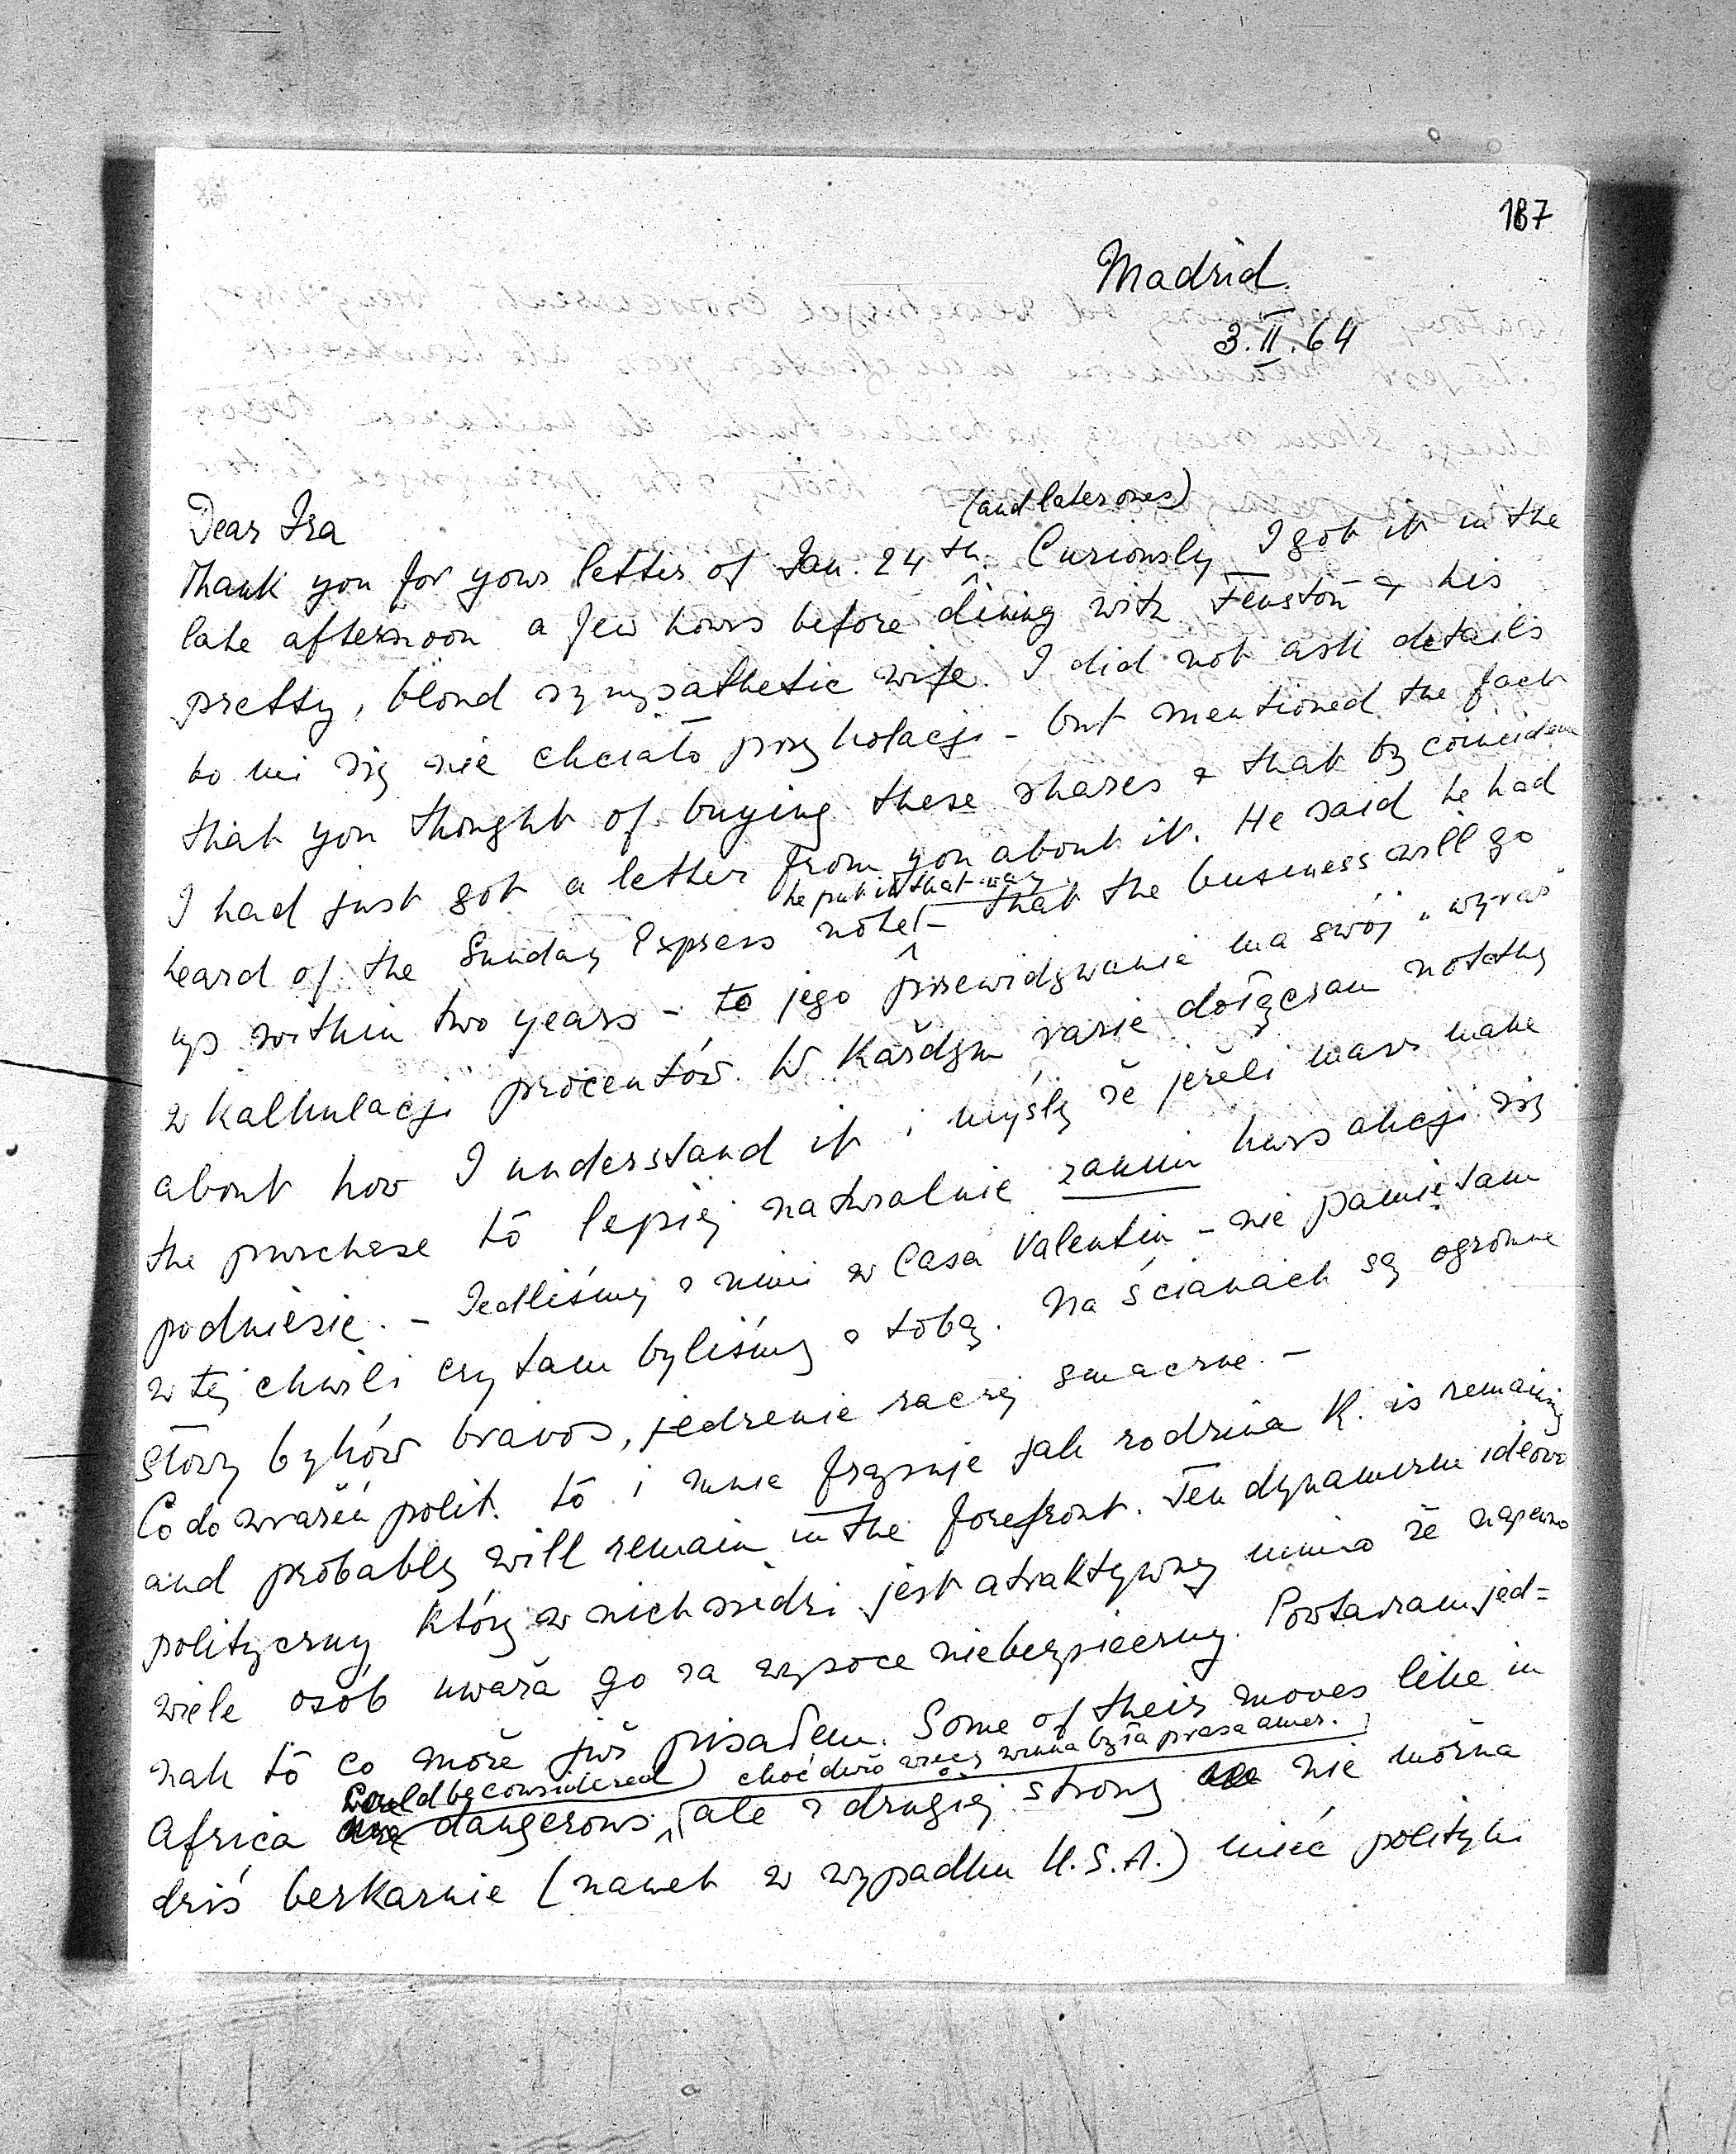 187
Madrid
3.II.64
Dear Ira
(and later ones)
Thank you for your letter of Jan. 24th. Curiously I got it in the
late afternoon a few hours before dining with Fenston & his
pretty, blond sympathetic wife. I did not ask details
bo mi się nie chciało przy kolacji - but mentioned the fact
that you thought of buying these shares & that by coincidence
I had just got a letter from you about it. He said he had
he put it that way
heard of the Sunday Express note - that the business will go
up within two years - to jego przewidywanie ma swój „wyraz"
w kalkulacji procentów. W każdym razie dołączam notatkę
about how I understand it i myślę że jeżeli masz make
the purchase to lepiej naturalnie zanim kurs akcji się
podniesie. - Jedliśmy z nimi w Casa Valentin - nie pamiętam
w tej chwili czy tam byliśmy z tobą. Na ścianach są ogromne
głowy byków bravos, jedzenie raczej smaczne. -
Co do wrażeń polit. to i mnie frapuje jak rodzina K. is remaining
and probably will remain in the forefront. Ten dynamizm ideowo
polityczny który w nich siedzi jest atraktywny mimo że napewno
wiele osób uważa go za wysoce niebezpieczny. Powtarzam jed=
nak to co może już pisałem. Some of their moves like in
could be considered) choć dużo więcej winna była prasa amer.
Africa dangerous, ale z drugiej strony nie można
dziś bezkarnie (nawet w wypadku U.S.A.) mieć polityki